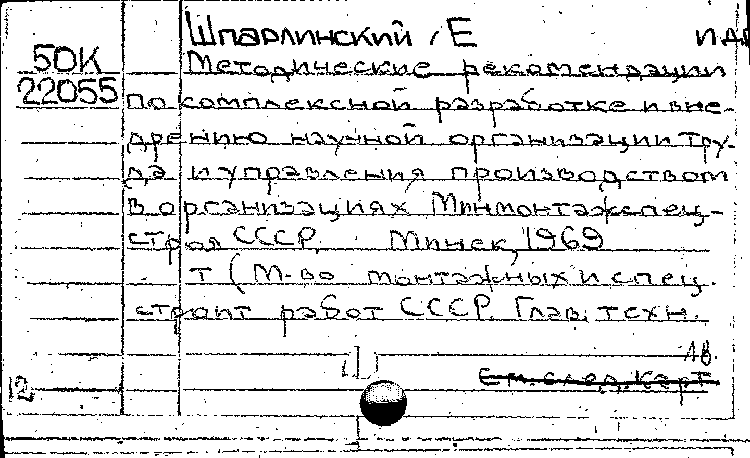 Шпарлинский, Е
50К
22055
Методические рекомендации
по комплексной разработке и вне-
дрению научной организации тру-
да и управления производством
в организациях Минмонтажспец-
строя СССР. Минск, 1969
т (М-во монтажных и спец.
строит работ СССР. Глав. техн.
1в.
См. след. карт
12